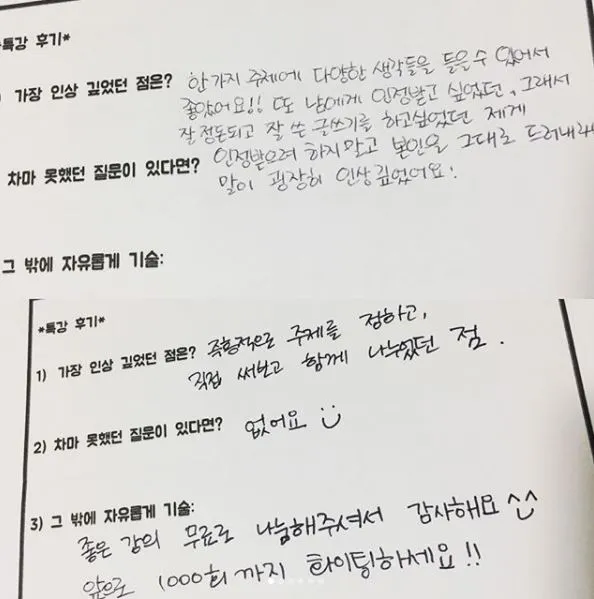 *특강 후기*
가장 인상 깊었던 점은? 한가지 주제에 다양한 생각들을 들을수 있어서
좋았어요!! 또 남에게 인정받고 싶었던, 그래서
잘 정돈되고 잘 쓴 글쓰기를 하고싶었던 제게
차마 못했던 질문이 있다면? 인정받으려 하지 말고 본인을 그대로 드러내라
말이 굉장히 인상 깊었어요!
그 밖에 자유롭게 기술:
*특강 후기*
1) 가장 인상 깊었던 점은? 즉흥적으로 주제를 정하고,
직접 써보고 함께 나누었던 점.
2) 차마 못했던 질문이 있다면? 없어요
3) 그 밖에 자유롭게 기술:
좋은 강의 무료로 나눔해주셔서 감사해요^^
앞으로 1000회까지 화이팅하세요!!